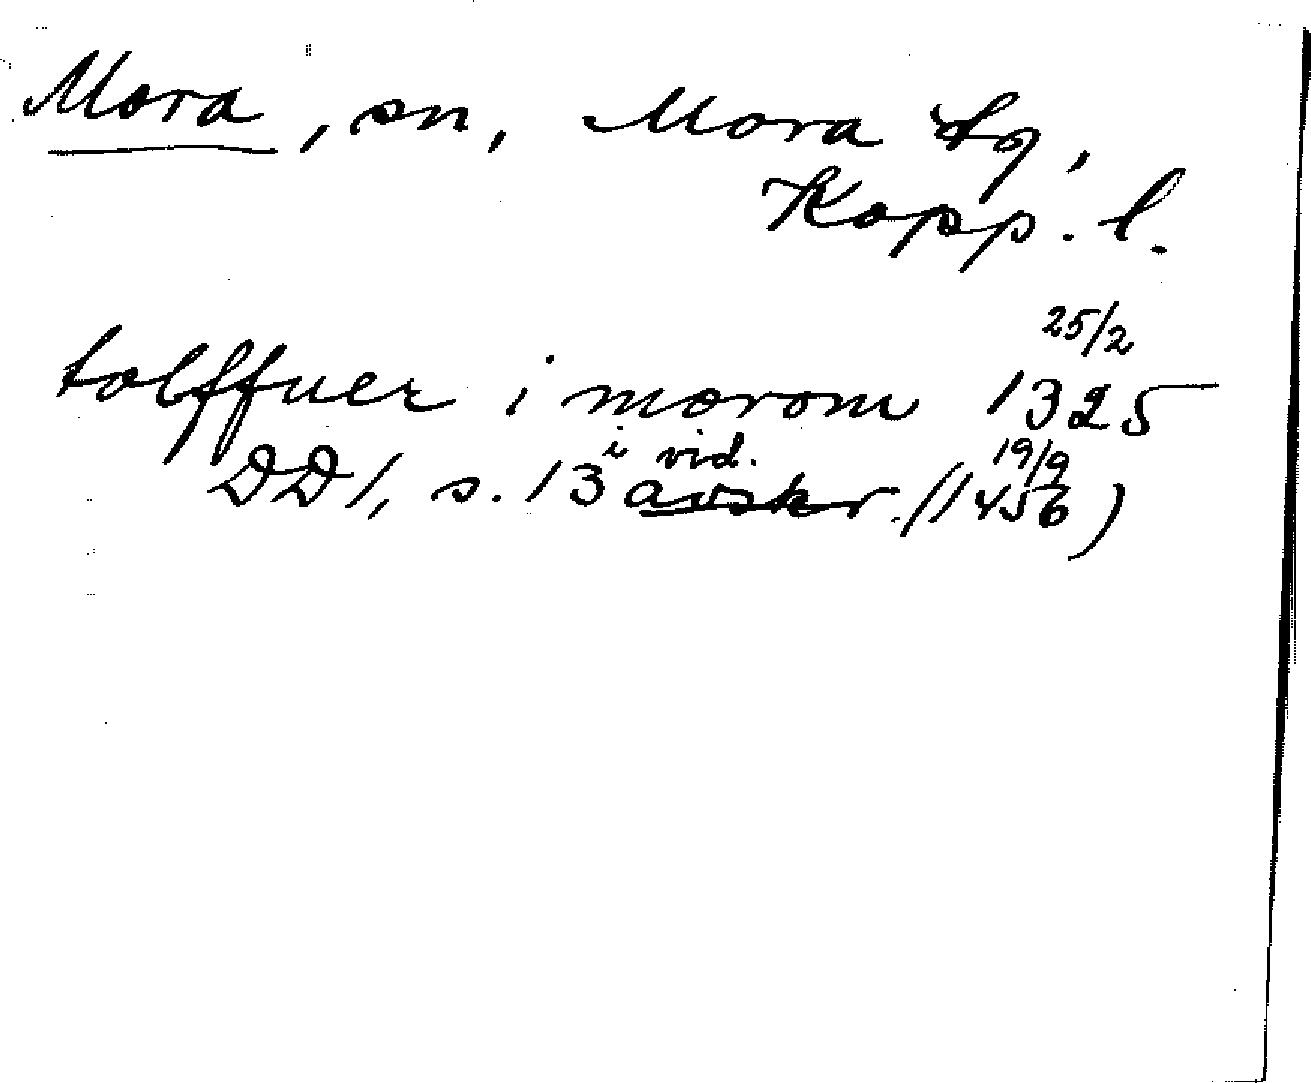 Mora, sn, Mora tg,
Kopp. l.
tolffuer i morom 1325 25/2
DD 1, s. 13 i vid. avskr. (19/9 1456)